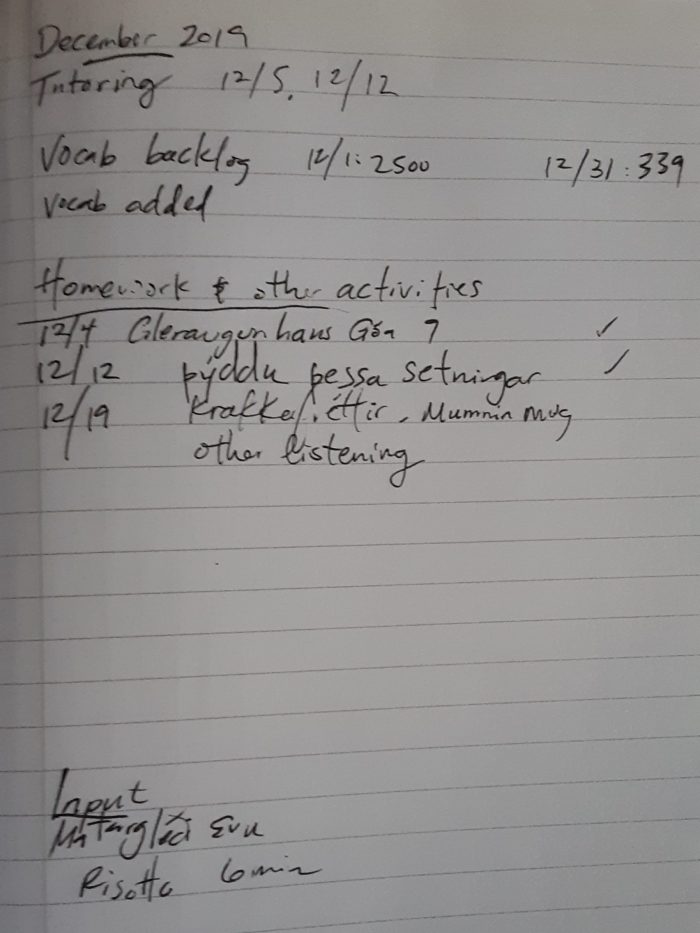 December 2019
Tutoring 12/5, 12/12
Vocab backlog 12/1: 2500 12/31: 339
Vocab added
Homework & other activities
12/4 Gleraugun hans Góa 7 ✓
12/12 þýddu þessa setningar ✓
12/19 Mummin mug
other listening
Input
Matargleði Evu
Risotto 6 min